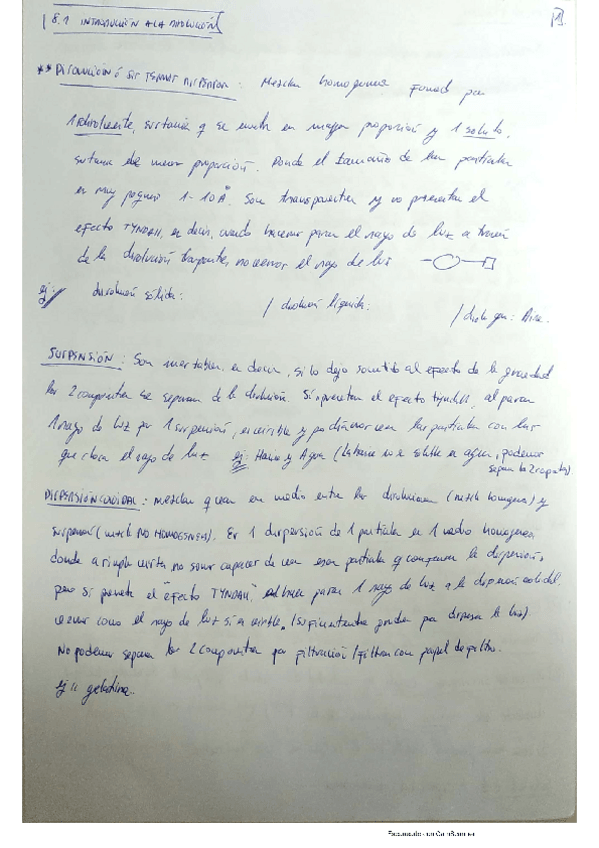 8.1 INTRODUCCIÓN A LA DISOLUCIÓN
1
** DISOLUCIÓN ó SISTEMAS DISPERSOS: Mezclas homogéneas formada por
1 disolvente, sustancia q se encuentra en mayor proporción y 1 soluto,
sustancia de menor proporción. Donde el tamaño de las partículas
es muy pequeño 1-10 Å. Son transparentes y no presentan el
efecto TYNDALL, es decir, cuando hacemos pasar el rayo de luz a través
de la disolución transparente, no vemos el rayo de luz
ej: disolución sólida: / disolución líquida: / disol. gas: Aire.
SUSPENSIÓN: Son inestables, es decir, si lo dejo sometido al efecto de la gravedad
los 2 componentes se separan de la disolución. Si presentan el efecto tyndall, al pasar
1 rayo de luz por 1 suspensión, es visible y podemos ver las partículas con las
que choca el rayo de luz ej: Harina y Agua (la harina no es soluble en agua, podemos
separar las 2 capas)
DISPERSIÓN COLOIDAL: Mezclas q están en medio entre las disoluciones (mezcla homogénea) y
suspensiones (mezcla NO HOMOGENEA). Es 1 dispersión de 1 partícula en 1 medio homogéneo,
donde a simple vista no somos capaces de ver esas partículas q componen la dispersión,
pero si presenta el "efecto TYNDALL" al hacer pasar 1 rayo de luz a la dispersión coloidal
vemos como el rayo de luz si es visible. (suficientemente grandes para dispersar la luz)
No podemos separar los 2 componentes por filtración / filtran con papel de filtro.
ej: gelatina.
Escaneado con CamScanner